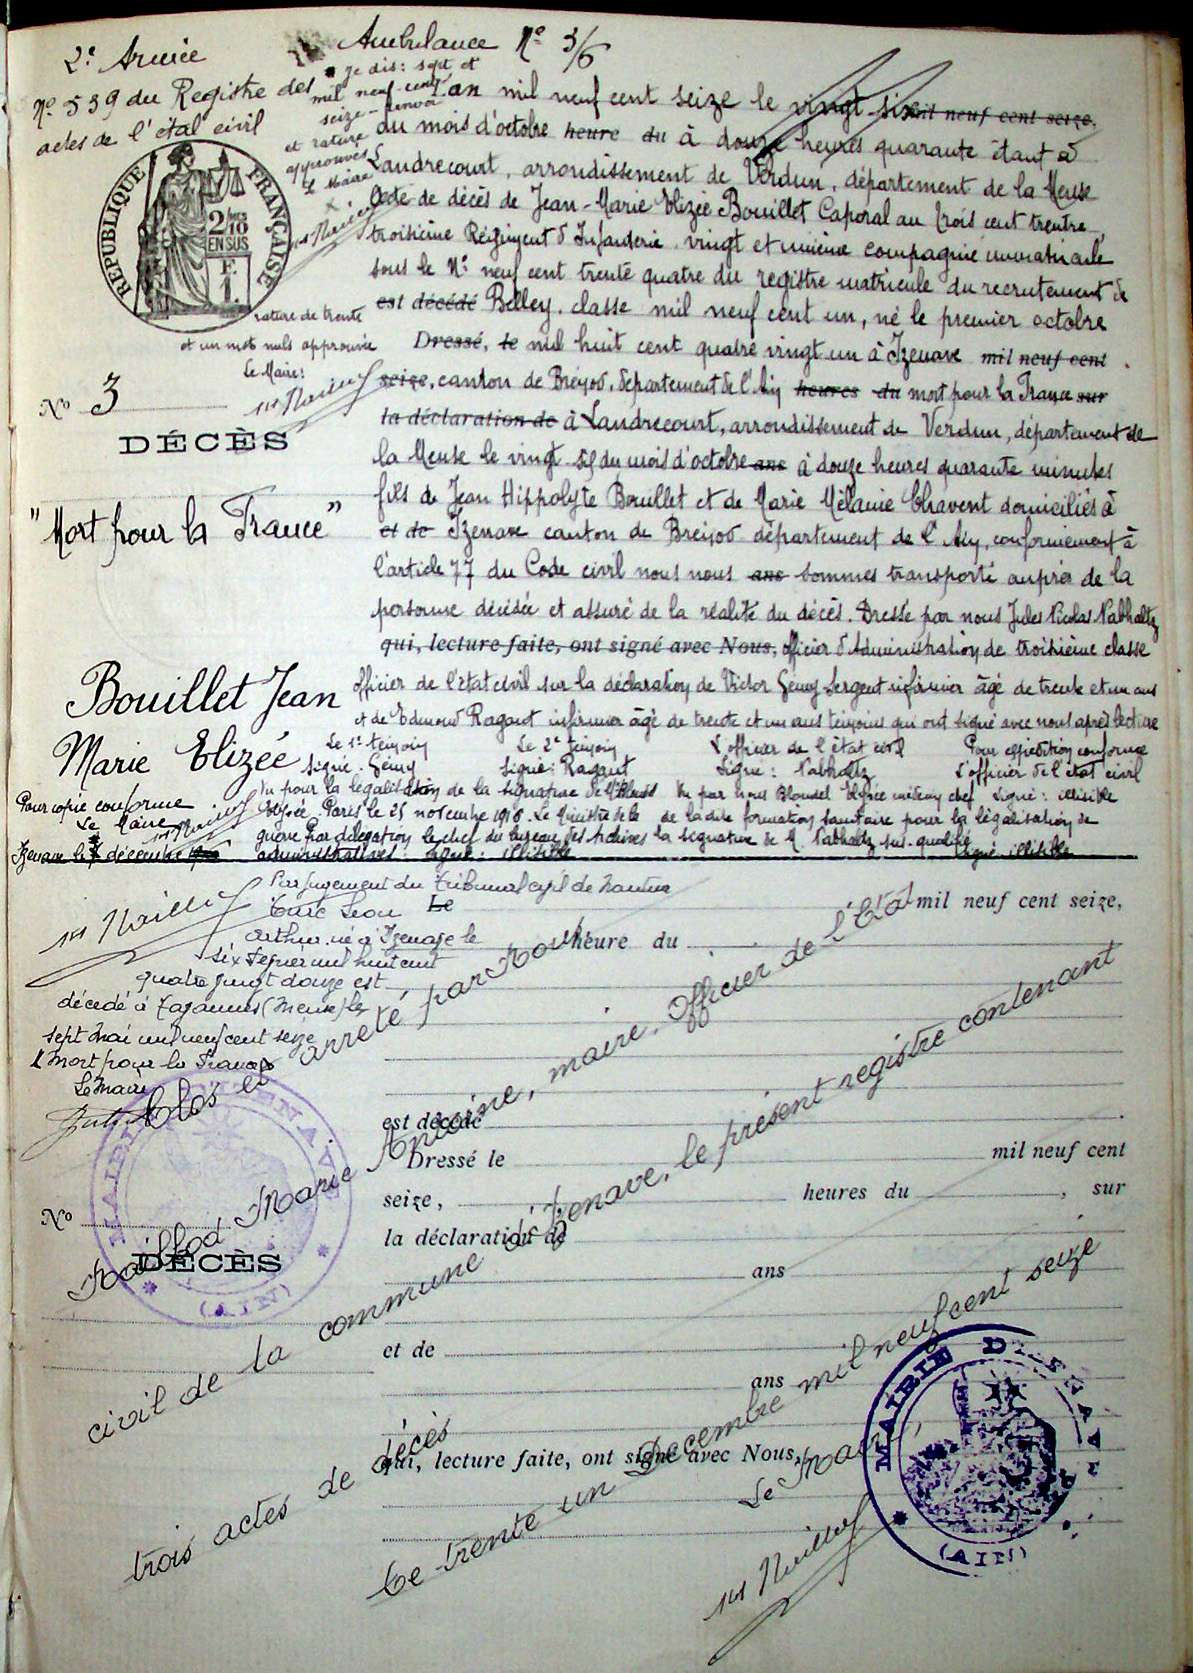 2e Armée
Ambulance No 3/6
No 539 du Registre des
actes de l'état civil
je dis : sept et
mil neuf cent
seize - renvoi
et rature
approuvés
Le Maire
RÉPUBLIQUE FRANÇAISE
2/10
EN SUS
L'an mil neuf cent seize le vingt-six mil neuf cent seize,
du mois d'octobre heure du à douze heures quarante étant à
Landrecourt, arrondissement de Verdun, département de la Meuse
Acte de décès de Jean-Marie Elizée Bouillet Caporal au trois cent trente
troisième Régiment d'Infanterie vingt et unième compagnie immatriculé
sous le No neuf cent trente quatre du registre matricule du recrutement de
est décédé Belley, classe mil neuf cent un, né le premier octobre
Dressé, le mil huit cent quatre vingt un à Izenave mil neuf cent
seize, canton de Brénod, département de l'Ain heures du mort pour la France sur
la déclaration de à Landrecourt, arrondissement de Verdun, département de
la Meuse le vingt six du mois d'octobre ans à douze heures quarante minutes
fils de Jean Hippolyte Bouillet et de Marie Mélanie Chavent domiciliés à
et de Izenave canton de Brénod département de l'Ain, conformément à
l'article 77 du Code civil nous nous ans sommes transporté auprès de la
personne décédée et assuré de la réalité du décès. Dressé par nous Jules Nicolas Nabholtz
qui, lecture faite, ont signé avec Nous, officier d'Administration de troisième classe
officier de l'état civil sur la déclaration de Victor Gémy Sergent infirmier âgé de trente et un ans
et de Edmond Ragaut infirmier âgé de trente et un ans témoins qui ont signé avec nous après lecture
Le 1er témoin
signé : Gémy
Le 2e témoin
signé : Ragaut
L'officier de l'état civil
signé : Nabholtz
Pour expédition conforme
L'officier de l'état civil
signé : illisible
Vu par nous Blondel Elysée médecin chef
de la dite formation sanitaire pour la légalisation de
la signature de M. Nabholtz sus-qualifié
signé illisible
Vu pour la légalisation de la signature de M. Blondel
Elysée. Paris le 25 novembre 1916. Le Ministre de la
guerre Par délégation le chef du bureau des Archives
administratives signé : illisible
rature de trente
et un mots nuls approuvée
Le Maire :
No 3
DÉCÈS
"Mort pour la France"
Bouillet Jean
Marie Elizée
Pour copie conforme
Le Maire
Izenave le décembre
Par jugement du tribunal civil de Nantua
Léon
Arthur né à Izenave le
six février mil huit cent
quatre vingt douze est
décédé à (Meuse) le
sept mai mil neuf cent seize
Mort pour la France
Le Maire
Le mil neuf cent seize,
heure du
est décédé
Dressé le mil neuf cent
seize, heures du , sur
la déclaration de
ans
et de
ans
qui, lecture faite, ont signé avec Nous,
No
DÉCÈS
Clos et arrêté, par Nous
Maillod Marie Antoine, maire, Officier de l'État
civil de la commune d'Izenave, le présent registre contenant
trois actes de décès
Ce trente un Décembre mil neuf cent seize
Le Maire,
MAIRIE D'IZENAVE
(AIN)
MAIRIE D'IZENAVE
(AIN)